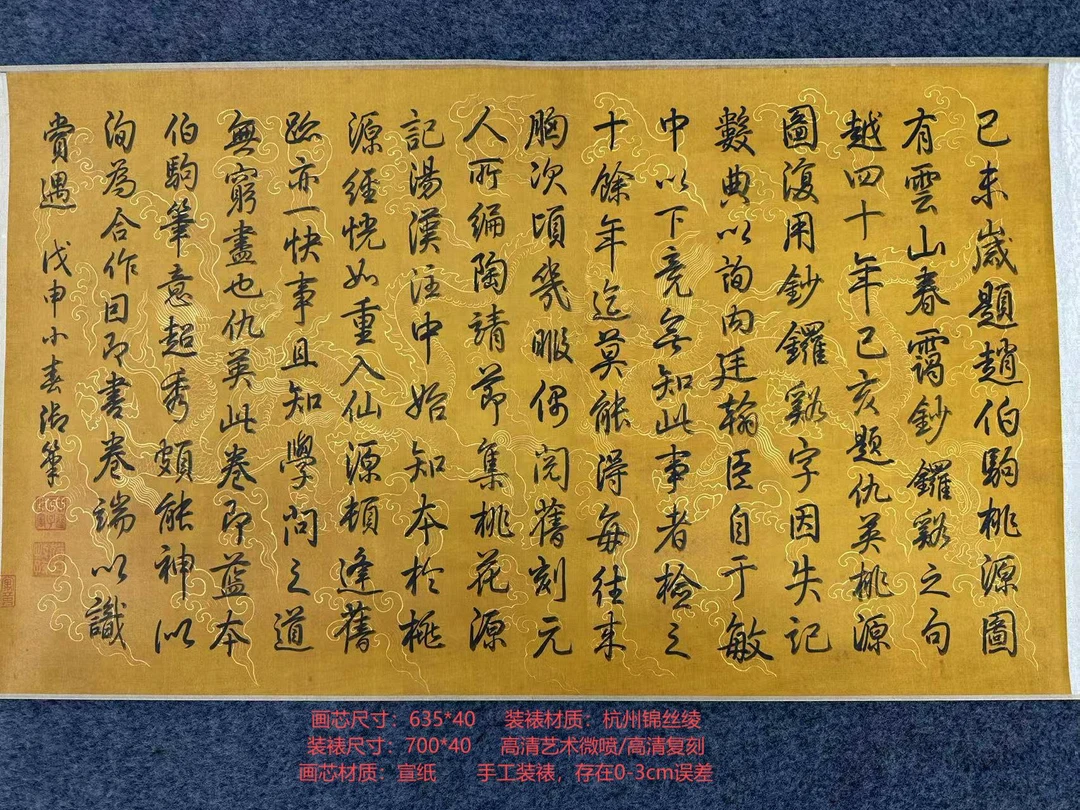 己未歲題趙伯駒桃源圖
有雲山春靄鈔鑼谿之句
越四十年己亥題仇英桃源
圖復用鈔鑼谿字因失記
數典以詢內廷翰臣自于敏
中以下竟無知此事者檢之
十餘年迄莫能得每往來
胸次頃幾暇偶閱舊刻元
人所編陶靖節集桃花源
記湯漢注中始知本於桃
源經恍如重入仙源頓逢舊
跡亦一快事且知學問之道
無窮盡也仇英此卷即藍本
伯駒筆意超秀頗能神似
洵為合作因即書卷端以識
賞遇 戊申小春御筆
画芯尺寸：635*40 装裱材质：杭州锦丝绫
装裱尺寸：700*40 高清艺术微喷/高清复刻
画芯材质：宣纸 手工装裱，存在0-3cm误差